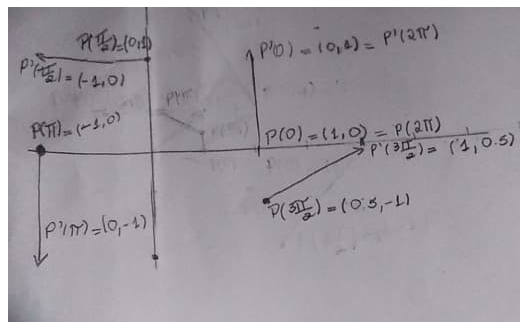 P(π/2)=(0,1)
P'(π/2)=(-1,0)
P'(0) = (0,1) = P'(2π)
P(π)=(-1,0)
P(0) = (1,0) = P(2π)
P'(3π/2) = (1,0.5)
P(3π/2) = (0.5,-1)
P'(π)=(0,-1)